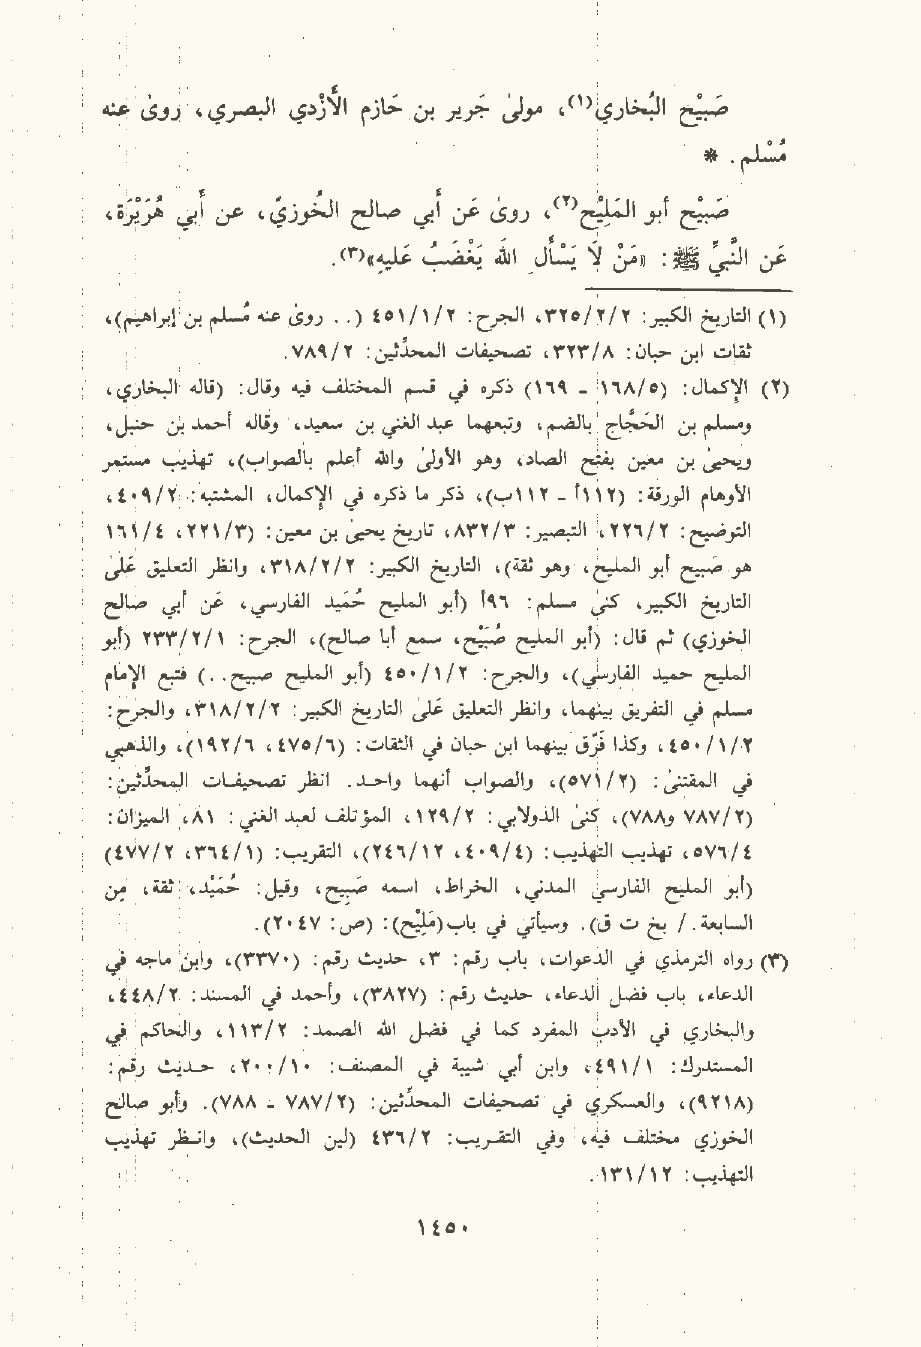 صَبِيْح البُخاري⁽¹⁾، مولىٰ جَرير بن حَازم الأَزْدي البصري، روىٰ عنه
مُسْلم. *
صَبِيْح أبو المَلِيْح⁽²⁾، روىٰ عَن أبي صالح الخُوزيّ، عن أبي هُرَيْرَة،
عَن النَّبيِّ ﷺ: «مَنْ لاَ يَسْأَل اللهَ يَغْضَبُ عَليهِ»⁽³⁾.
(١) التاريخ الكبير: ٣٢٥/٢/٢، الجرح: ٤٥١/١/٢ (.. روىٰ عنه مُسلم بن إبراهيم)،
ثقات ابن حبان: ٣٢٣/٨، تصحيفات المحدّثين: ٧٨٩/٢.
(٢) الإكمال: (١٦٨/٥ - ١٦٩) ذكره في قسم المختلف فيه وقال: (قاله البخاري،
ومسلم بن الحَجاج بالضم، وتبعهما عبد الغني بن سعيد، وقاله أحمد بن حنبل،
ويحيىٰ بن معين بفتح الصاد، وهو الأولىٰ والله أعلم بالصواب)، تهذيب مستمر
الأوهام الورقة: (١١٢أ - ١١٢ب)، ذكر ما ذكره في الإكمال، المشتبه: ٤٠٩/٢،
التوضيح: ٢٢٦/٢، التبصير: ٨٣٢/٣، تاريخ يحيىٰ بن معين: (٢٢١/٣، ١٦١/٤
هو صَبيح أبو المليخ، وهو ثقة)، التاريخ الكبير: ٣١٨/٢/٢، وانظر التعليق علىٰ
التاريخ الكبير، كنىٰ مسلم: ٩٦أ (أبو المليح حُمَيد الفارسي، عَن أبي صالح
الخوزي) ثم قال: (أبو المليح صُبَيْح، سمع أبا صالح)، الجرح: ٢٣٣/٢/١ (أبو
المليح حميد الفارسي)، والجرح: ٤٥٠/١/٢ (أبو المليح صبيح..) فتبع الإمام
مسلم في التفريق بينهما، وانظر التعليق علىٰ التاريخ الكبير: ٣١٨/٢/٢، والجرح:
٤٥٠/١/٢، وكذا فَرّق بينهما ابن حبان في الثقات: (٤٧٥/٦، ١٩٢/٦)، والذهبي
في المقتنىٰ: (٥٧١/٢)، والصواب أنهما واحد. انظر تصحيفات المحدّثين:
(٧٨٧/٢ و٧٨٨)، كنىٰ الدولابي: ١٢٩/٢، المؤتلف لعبد الغني: ٨١، الميزان:
٥٧٦/٤، تهذيب التهذيب: (٤٠٩/٤، ٢٤٦/١٢)، التقريب: (٣٦٤/١، ٤٧٧/٢)
(أبو المليح الفارسي المدني، الخراط، اسمه صَبيح، وقيل: حُمَيْد، ثقة، مِن
السابعة. / بخ ت ق). وسيأتي في باب(مَلِيْح): (ص: ٢٠٤٧).
(٣) رواه الترمذي في الدعوات، باب رقم: ٣، حديث رقم: (٣٣٧٠)، وابن ماجه في
الدعاء، باب فضل الدعاء، حديث رقم: (٣٨٢٧)، وأحمد في المسند: ٤٤٨/٢،
والبخاري في الأدب المفرد كما في فضل الله الصمد: ١١٣/٢، والحاكم في
المستدرك: ٤٩١/١، وابن أبي شيبة في المصنف: ٢٠٠/١٠، حديث رقم:
(٩٢١٨)، والعسكري في تصحيفات المحدّثين: (٧٨٧/٢ - ٧٨٨). وأبو صالح
الخوزي مختلف فيه، وفي التقريب: ٤٣٦/٢ (لين الحديث)، وانظر تهذيب
التهذيب: ١٣١/١٢.
١٤٥٠